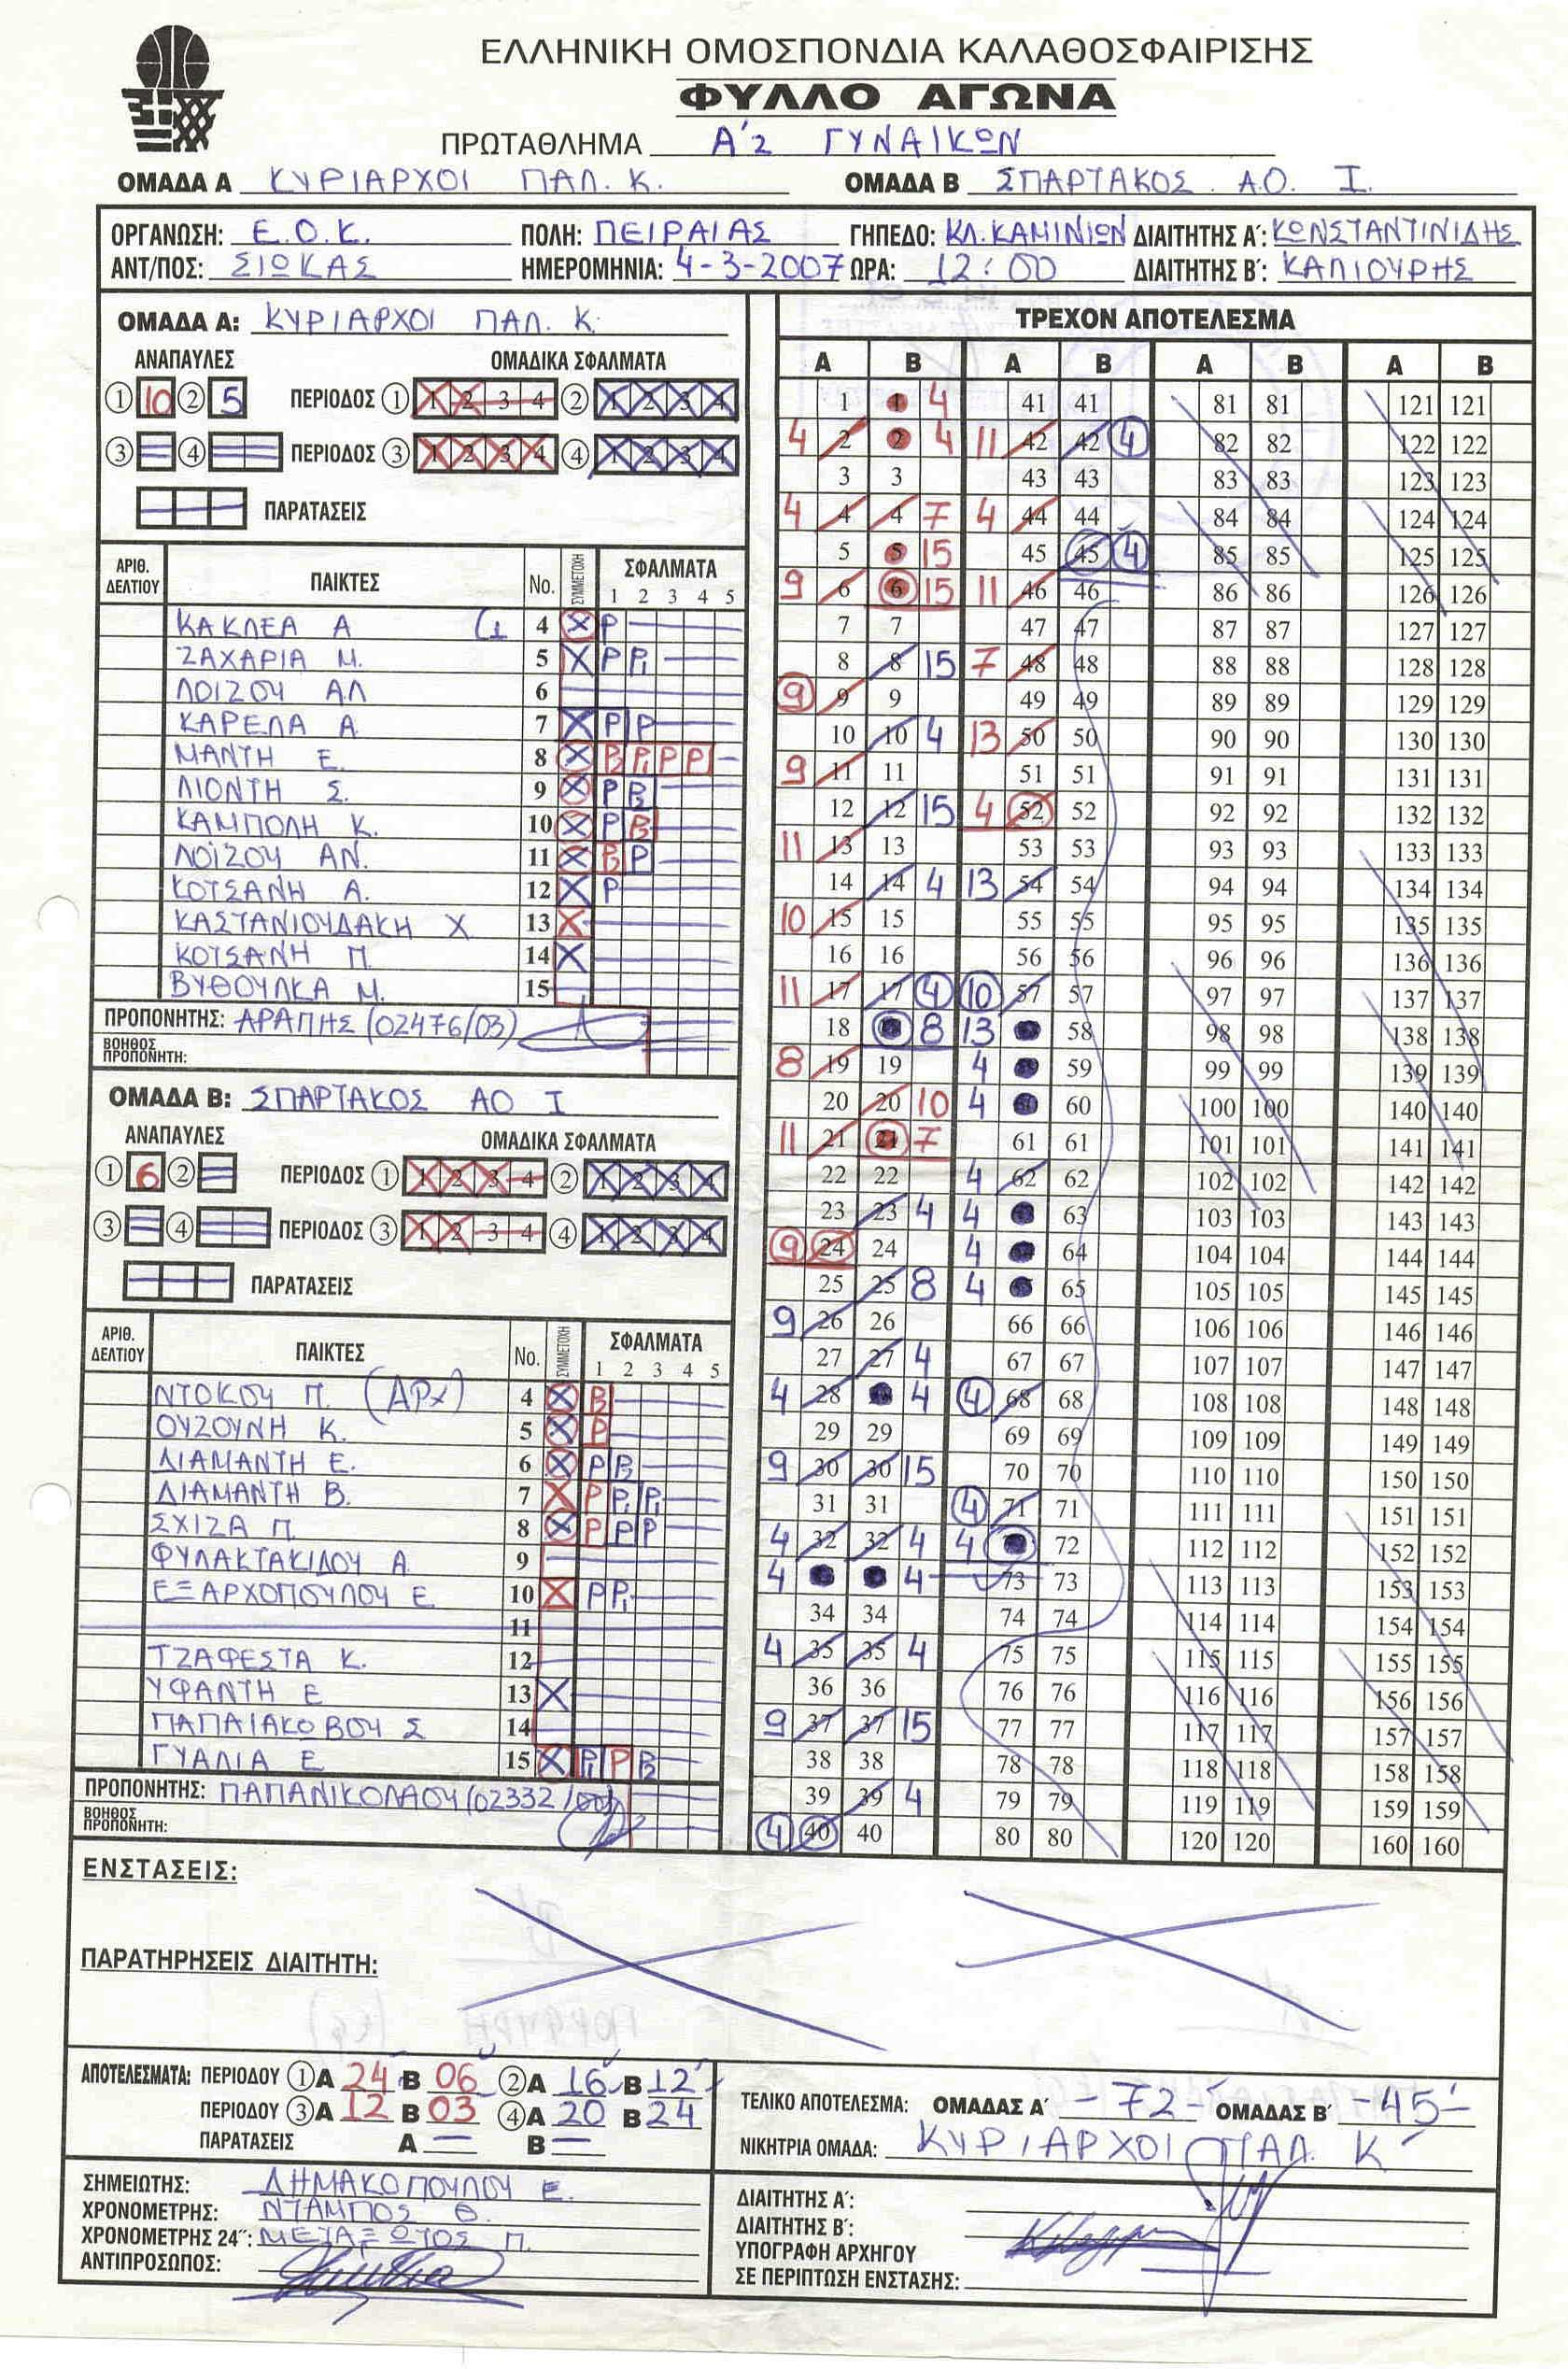 ΕΛΛΗΝΙΚΗ ΟΜΟΣΠΟΝΔΙΑ ΚΑΛΑΘΟΣΦΑΙΡΙΣΗΣ
ΦΥΛΛΟ ΑΓΩΝΑ
ΠΡΩΤΑΘΛΗΜΑ Α'2 ΓΥΝΑΙΚΩΝ
ΟΜΑΔΑ Α ΚΥΡΙΑΡΧΟΙ ΠΑΛ. Κ. ΟΜΑΔΑ Β ΣΠΑΡΤΑΚΟΣ Α.Ο. Ι.
ΟΡΓΑΝΩΣΗ: Ε.Ο.Κ. ΠΟΛΗ: ΠΕΙΡΑΙΑΣ ΓΗΠΕΔΟ: ΚΛ. ΚΑΜΙΝΙΩΝ ΔΙΑΙΤΗΤΗΣ Α': ΚΩΝΣΤΑΝΤΙΝΙΔΗΣ
ΑΝΤ/ΠΟΣ: ΣΙΩΚΑΣ ΗΜΕΡΟΜΗΝΙΑ: 4-3-2007 ΩΡΑ: 12:00 ΔΙΑΙΤΗΤΗΣ Β': ΚΑΛΙΟΥΡΗΣ
ΟΜΑΔΑ Α: ΚΥΡΙΑΡΧΟΙ ΠΑΛ. Κ.
ΑΝΑΠΑΥΛΕΣ ΟΜΑΔΙΚΑ ΣΦΑΛΜΑΤΑ
1 10 2 5 ΠΕΡΙΟΔΟΣ 1 1 2 3 4 2 1 2 3 4
3 4 ΠΕΡΙΟΔΟΣ 3 1 2 3 4 4 1 2 3 4
ΠΑΡΑΤΑΣΕΙΣ
ΑΡΙΘ. ΔΕΛΤΙΟΥ ΠΑΙΚΤΕΣ No. ΣΥΜΜΕΤΟΧΗ ΣΦΑΛΜΑΤΑ
1 2 3 4 5
ΚΑΚΛΕΑ Α 4 X P
ΖΑΧΑΡΙΑ Μ. 5 X P P1
ΛΟΙΖΟΥ ΑΛ 6
ΚΑΡΕΛΑ Α. 7 X P P
ΜΑΝΤΗ Ε. 8 X P2 P1 P P
ΛΙΟΝΤΗ Σ. 9 X P P2
ΚΑΜΠΟΛΗ Κ. 10 X P P2
ΛΟΪΖΟΥ ΑΝ. 11 X P2 P
ΚΟΤΣΑΝΗ Α. 12 X P
ΚΑΣΤΑΝΙΟΥΔΑΚΗ Χ 13 X
ΚΟΤΣΑΝΗ Π. 14 X
ΒΥΘΟΥΛΚΑ Μ. 15
ΠΡΟΠΟΝΗΤΗΣ: ΑΡΑΠΗΣ (02476/03)
ΒΟΗΘΟΣ ΠΡΟΠΟΝΗΤΗ:
ΟΜΑΔΑ Β: ΣΠΑΡΤΑΚΟΣ ΑΟ Ι
ΑΝΑΠΑΥΛΕΣ ΟΜΑΔΙΚΑ ΣΦΑΛΜΑΤΑ
1 6 2 ΠΕΡΙΟΔΟΣ 1 1 2 3 4 2 1 2 3 4
3 4 ΠΕΡΙΟΔΟΣ 3 1 2 3 4 4 1 2 3 4
ΠΑΡΑΤΑΣΕΙΣ
ΑΡΙΘ. ΔΕΛΤΙΟΥ ΠΑΙΚΤΕΣ No. ΣΥΜΜΕΤΟΧΗ ΣΦΑΛΜΑΤΑ
1 2 3 4 5
ΝΤΟΚΟΥ Π. (ΑΡΧ) 4 X P2
ΟΥΖΟΥΝΗ Κ. 5 X P
ΔΙΑΜΑΝΤΗ Ε. 6 X P P2
ΔΙΑΜΑΝΤΗ Β. 7 X P P1 P1
ΣΧΙΖΑ Π. 8 X P P P
ΦΥΛΑΚΤΑΚΙΔΟΥ Α. 9
ΕΞΑΡΧΟΠΟΥΛΟΥ Ε. 10 X P P1
11
ΤΖΑΦΕΣΤΑ Κ. 12
ΥΦΑΝΤΗ Ε 13 X
ΠΑΠΑΙΑΚΟΒΟΥ Σ 14
ΓΥΑΛΙΑ Ε 15 X P1 P P2
ΠΡΟΠΟΝΗΤΗΣ: ΠΑΠΑΝΙΚΟΛΑΟΥ (02332/
ΒΟΗΘΟΣ ΠΡΟΠΟΝΗΤΗ:
ΤΡΕΧΟΝ ΑΠΟΤΕΛΕΣΜΑ
A B A B A B A B
1 1 4 41 41 81 81 121 121
4 2 2 4 11 42 42 4 82 82 122 122
3 3 43 43 83 83 123 123
4 4 4 7 4 44 44 84 84 124 124
5 5 15 45 45 4 85 85 125 125
9 6 6 15 11 46 46 86 86 126 126
7 7 47 47 87 87 127 127
8 8 15 7 48 48 88 88 128 128
9 9 9 49 49 89 89 129 129
10 10 4 13 50 50 90 90 130 130
9 11 11 51 51 91 91 131 131
12 12 15 4 52 52 92 92 132 132
11 13 13 53 53 93 93 133 133
14 14 4 13 54 54 94 94 134 134
10 15 15 55 55 95 95 135 135
16 16 56 56 96 96 136 136
11 17 17 4 10 57 57 97 97 137 137
18 8 13 58 98 98 138 138
8 19 19 4 59 99 99 139 139
20 20 10 4 60 60 100 100 140 140
11 21 21 7 61 61 101 101 141 141
22 22 4 62 62 102 102 142 142
23 23 4 4 63 103 103 143 143
9 24 24 4 64 104 104 144 144
25 25 8 4 65 105 105 145 145
9 26 26 66 66 106 106 146 146
27 27 4 67 67 107 107 147 147
4 28 4 4 68 68 108 108 148 148
29 29 69 69 109 109 149 149
9 30 30 15 70 70 110 110 150 150
31 31 4 71 71 111 111 151 151
4 32 32 4 4 72 112 112 152 152
4 4 73 73 113 113 153 153
34 34 74 74 114 114 154 154
4 35 35 4 75 75 115 115 155 155
36 36 76 76 116 116 156 156
9 37 37 15 77 77 117 117 157 157
38 38 78 78 118 118 158 158
39 39 4 79 79 119 119 159 159
4 40 40 80 80 120 120 160 160
ΕΝΣΤΑΣΕΙΣ:
ΠΑΡΑΤΗΡΗΣΕΙΣ ΔΙΑΙΤΗΤΗ:
ΑΠΟΤΕΛΕΣΜΑΤΑ: ΠΕΡΙΟΔΟΥ 1 Α 24 Β 06 2 Α 16 Β 12
ΠΕΡΙΟΔΟΥ 3 Α 12 Β 03 4 Α 20 Β 24
ΠΑΡΑΤΑΣΕΙΣ Α — Β —
ΤΕΛΙΚΟ ΑΠΟΤΕΛΕΣΜΑ: ΟΜΑΔΑΣ Α' -72- ΟΜΑΔΑΣ Β' -45-
ΝΙΚΗΤΡΙΑ ΟΜΑΔΑ: ΚΥΡΙΑΡΧΟΙ ΠΑΛ. Κ
ΣΗΜΕΙΩΤΗΣ: ΔΗΜΑΚΟΠΟΥΛΟΥ Ε.
ΧΡΟΝΟΜΕΤΡΗΣ: ΝΤΑΜΠΟΣ Θ.
ΧΡΟΝΟΜΕΤΡΗΣ 24'': ΜΕΤΑΞΩΤΟΣ Π.
ΑΝΤΙΠΡΟΣΩΠΟΣ:
ΔΙΑΙΤΗΤΗΣ Α':
ΔΙΑΙΤΗΤΗΣ Β':
ΥΠΟΓΡΑΦΗ ΑΡΧΗΓΟΥ
ΣΕ ΠΕΡΙΠΤΩΣΗ ΕΝΣΤΑΣΗΣ: